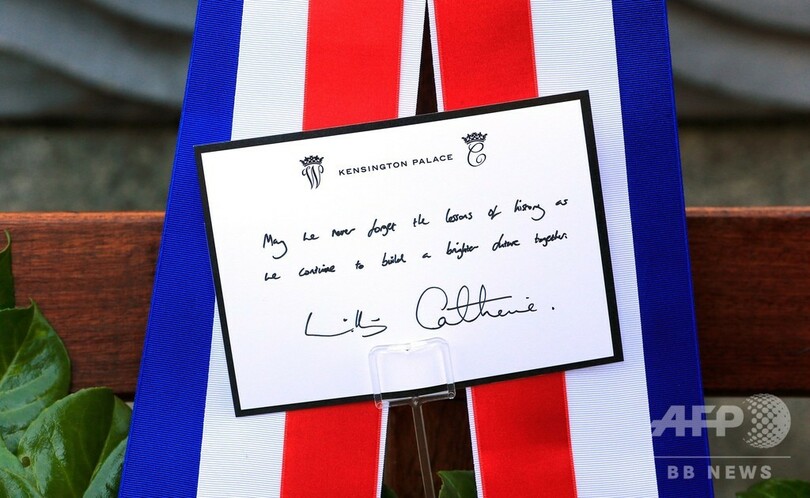 W KENSINGTON PALACE C
May we never forget the lessons of history as
we continue to build a brighter future together.
William Catherine.
AFP
BB NEWS